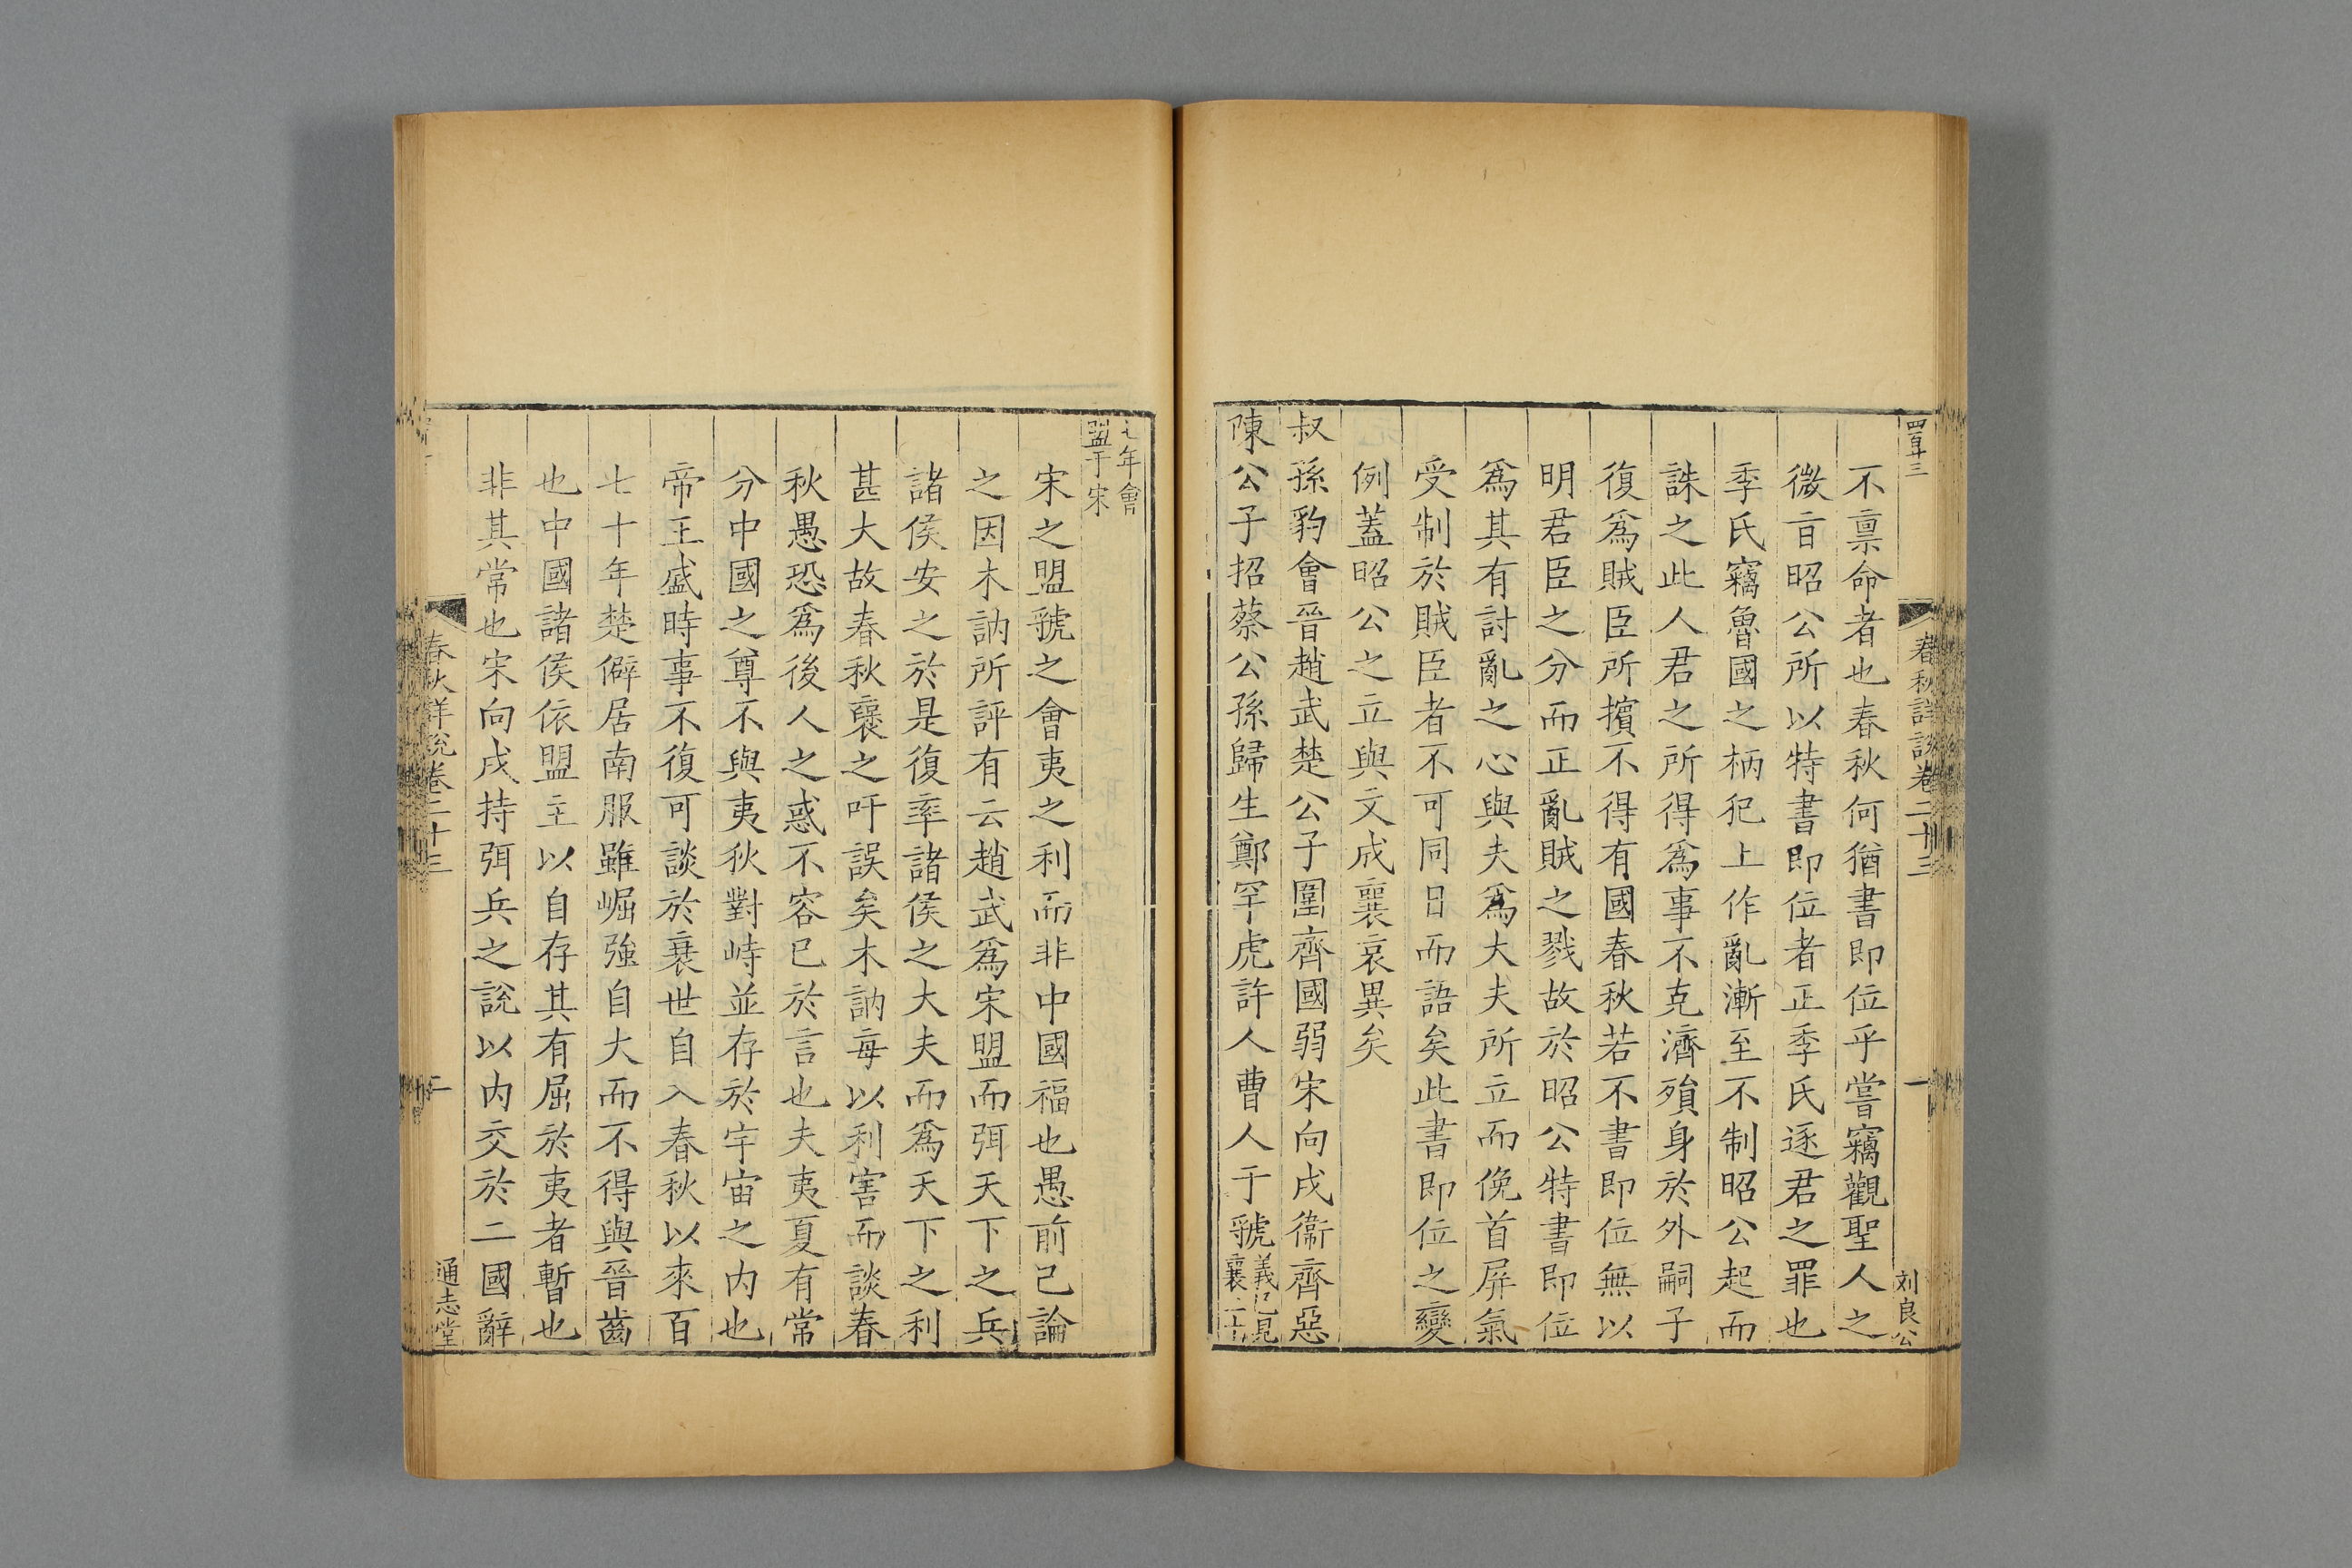 四百十三
春秋詳說卷二十三
一
刘良公
不禀命者也春秋何猶書即位乎嘗竊觀聖人之
微㫖昭公所以特書即位者正季氏逐君之罪也
季氏竊魯國之柄犯上作亂漸至不制昭公起而
誅之此人君之所得爲事不克濟殞身於外嗣子
復爲賊臣所擯不得有國春秋若不書即位無以
明君臣之分而正亂賊之戮故於昭公特書即位
爲其有討亂之心與夫爲大夫所立而俛首屏氣
受制於賊臣者不可同日而語矣此書即位之變
例蓋昭公之立與文成襄哀異矣
叔孫豹會晉趙武楚公子圍齊國弱宋向戌衞齊惡
陳公子招蔡公孫歸生鄭罕虎許人曹人于虢
義已見
襄二十
七年會
盟于宋
宋之盟虢之會夷之利而非中國福也愚前己論
之因木訥所評有云趙武爲宋盟而弭天下之兵
諸侯安之於是復率諸侯之大夫而爲天下之利
甚大故春秋襃之吁誤矣木訥每以利害而談春
秋愚恐爲後人之惑不容已於言也夫夷夏有常
分中國之尊不與夷狄對峙並存於宇宙之内也
帝王盛時事不復可談於衰世自入春秋以來百
七十年楚僻居南服雖崛強自大而不得與晉齒
也中國諸侯依盟主以自存其有屈於夷者暫也
非其常也宋向戌持弭兵之說以内交於二國辭
春秋詳說卷二十三
二
通志堂